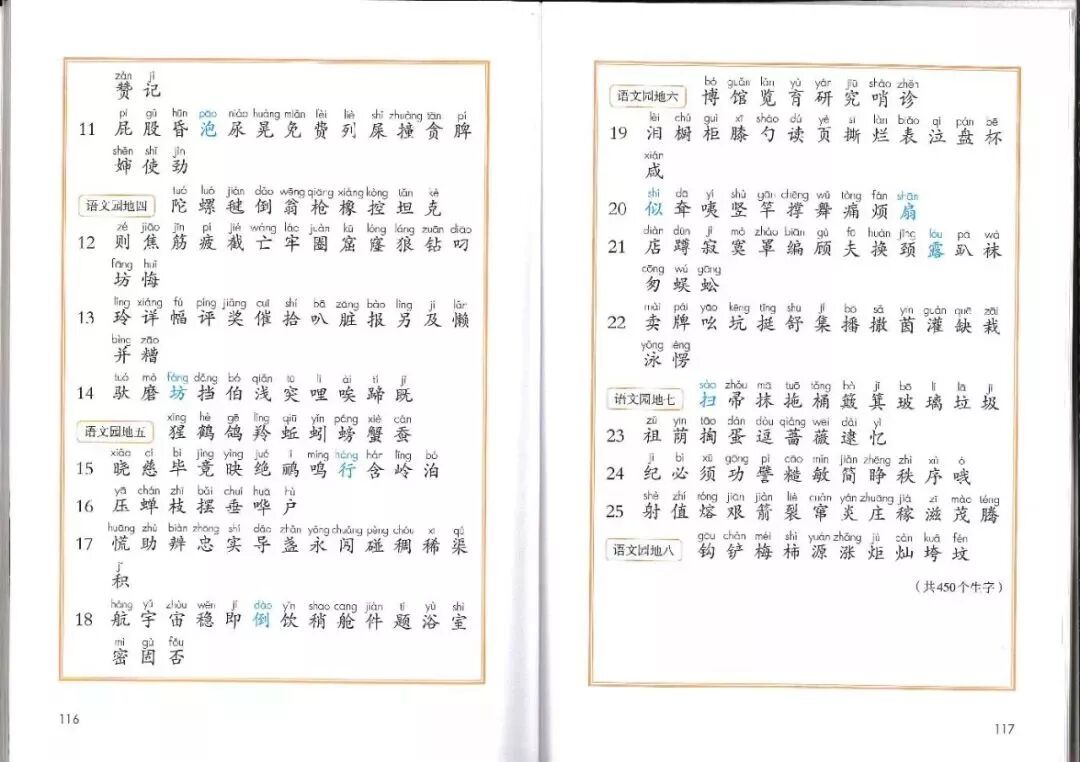 zàn jì
赞 记
pì gǔ hūn pāo niào huàng miǎn fèi liè shǐ zhuàng tān pí
11 屁 股 昏 泡 尿 晃 免 费 列 屎 撞 贪 脾
shěn shǐ jìn
婶 使 劲
tuó luó jiàn dǎo wēng qiāng xiàng kòng tǎn kè
语文园地四 陀 螺 毽 倒 翁 枪 橡 控 坦 克
zé jiāo jīn pí jié wáng láo juàn kū lóng láng zuān diāo
12 则 焦 筋 疲 截 亡 牢 圈 窟 窿 狼 钻 叼
fāng huǐ
坊 悔
líng xiáng fú píng jiǎng cuī shí bā zāng bào lìng jí lǎn
13 玲 详 幅 评 奖 催 拾 叭 脏 报 另 及 懒
bìng zāo
并 糟
tuó mò fáng dǎng bó qiǎn tū li ài tí jì
14 驮 磨 坊 挡 伯 浅 突 哩 唉 蹄 既
xīng hè gē líng qiū yǐn páng xiè cán
语文园地五 猩 鹤 鸽 羚 蚯 蚓 螃 蟹 蚕
xiǎo cí bì jìng yìng jué lí míng háng hán lǐng bó
15 晓 慈 毕 竟 映 绝 鹂 鸣 行 含 岭 泊
yā chán zhī bǎi chuí huā hù
16 压 蝉 枝 摆 垂 哗 户
huāng zhù biàn zhōng shí dǎo zhǎn yǒng chuǎng pèng chóu xī qú
17 慌 助 辨 忠 实 导 盏 永 闯 碰 稠 稀 渠
jī
积
háng yǔ zhòu wěn jí dào yǐn shāo cāng jiàn tí yù shì
18 航 宇 宙 稳 即 倒 饮 稍 舱 件 题 浴 室
mì gù fǒu
密 固 否
116
bó guǎn lǎn yù yán jiū shào zhěn
语文园地六 博 馆 览 育 研 究 哨 诊
lèi chú guì xī sháo dú yè sī làn biǎo qì pán bēi
19 泪 橱 柜 膝 勺 读 页 撕 烂 表 泣 盘 杯
xián
咸
shì dā yí shù gān chēng wǔ tòng fán shān
20 似 耷 咦 竖 竿 撑 舞 痛 烦 扇
diàn dūn jì mò zhào biān gù fū huàn jǐng lòu pā wà
21 店 蹲 寂 寞 罩 编 顾 夫 换 颈 露 趴 袜
cōng wú gōng
匆 蜈 蚣
mài pái yāo kēng tǐng shū jí bō sā yīn guàn quē zāi
22 卖 牌 吆 坑 挺 舒 集 播 撒 茵 灌 缺 栽
yǒng lèng
泳 愣
sào zhou mā tuō tǒng bò ji bō lí lā jī
语文园地七 扫 帚 抹 拖 桶 簸 箕 玻 璃 垃 圾
zǔ yīn tāo dàn dòu qiáng wēi dài yì
23 祖 荫 掏 蛋 逗 蔷 薇 逮 忆
jì bì xū gōng pì cāo mǐn jiǎn zhēng zhì xù ó
24 纪 必 须 功 譬 糙 敏 简 睁 秩 序 哦
shè zhí róng jiān jiàn liè cuàn yán zhuāng jià zī mào téng
25 射 值 熔 艰 箭 裂 窜 炎 庄 稼 滋 茂 腾
gōu chǎn méi shì yuán zhǎng jù càn kuǎ fén
语文园地八 钩 铲 梅 柿 源 涨 炬 灿 垮 坟
（共450个生字）
117